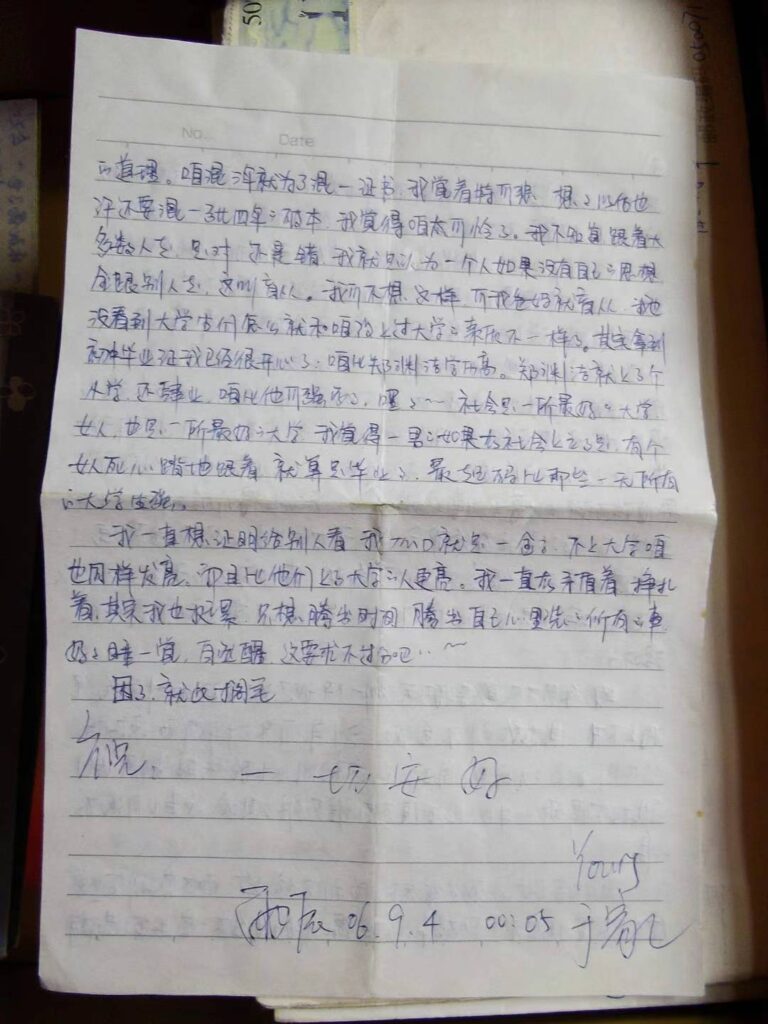 50
No. Date
的道理。咱混三年就为了混一证书,我觉着特可悲。想想以后也
许还要混一张四年之破本,我觉得咱太可怜了。我不知道跟着大
多数人走,是对,还是错,我就是认为一个人如果没有自己的思想
全跟别人走,这叫盲从。我可不想这样,
没看到大学生们怎么就和咱没上过大学之不一样了。其实拿到
初中毕业证我已经很开心了,咱比郑渊洁学历高。郑渊洁就上了个
小学,还肄业,咱比他可强多了,嘿嘿~~ 社会是一所最好的大学
女人,也是一所最好之大学 我觉得一男人如果在社会上立了足,有个
女人死心踏地跟着 就算是毕业了,最起码比那些一无所有
的大学生强。
我一直想证明给别人看 我就是一金子,不上大学咱
也同样发亮,而且比他们上了大学之人更亮。我一直在矛盾着,挣扎
着,其实我也挺累,只想腾出时间 腾出自己心里装之所有之事
好好睡一觉,自然醒,这要求不过分吧...~
困了,就此搁笔
祝 一切安好
Yours
06.9.4 00:05 于